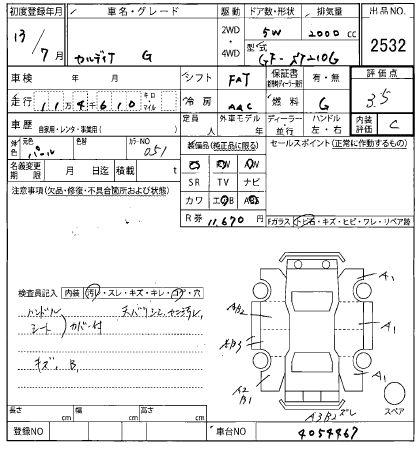 初度登録年月 車名・グレード 駆動 ドア数・形状 排気量 出品NO.
13/7月 カルディナ G 2WD・4WD 5W 2000cc 2532
型式 GF-ST210G
車検 年 月 シフト FAT 保証書 有・無 評価点
走行 11万4千610 キロ マイル 冷房 AAC 燃料 G 3.5
車歴 自家用・レンタ・事業用( ) 定員 人 外車モデル 年 ディーラー・並行 ハンドル 左・右 内装評価 C
外色 元色 パール 色替 カラーNO 051 装備品(純正品に限る) セールスポイント(正常に作動するもの)
名義変更期限 月 日迄 積載 t
SR TV ナビ
注意事項(欠品・修復・不具合箇所および状態) カワ
R券 11,670円
Fガラス トビ石・キズ・ヒビ・ワレ・リペア跡
検査員記入 内装 汚れ・スレ・キズ・キレ・コゲ・穴
ハンドル
シート カバー付
キズ, B1
A1
AB2
AB3
A1
A2
B1
A1
A3B2 ズレ
スペア
長さ cm 幅 cm 高さ cm
登録NO 車台NO 4054467